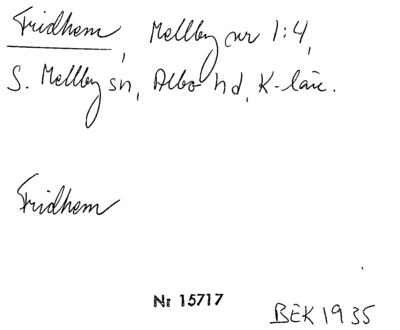 Fridhem, Mellby nr 1:4,
S. Mellby sn, Albo hd, K-län.
Fridhem
Nr 15717
BEK 1935